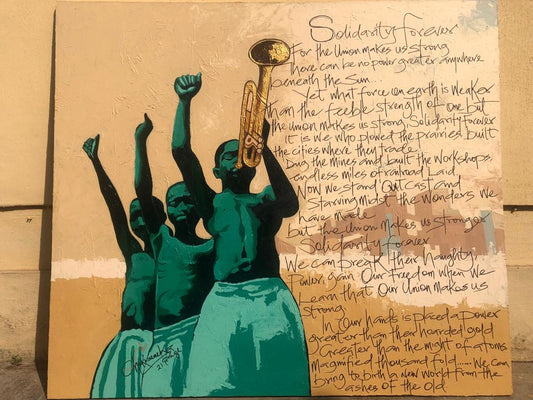 Solidarity forever
For the Union makes us strong
There can be no power greater anywhere
beneath the Sun...
Yet what force on earth is weaker
than the feeble strength of one but
the union makes us strong. Solidarity forever
it is we who plowed the prairies built
the cities where they trade
Dug the mines and built the workshops,
endless miles of railroad laid
Now we stand Out cast and
Starving midst the wonders we
have made
but the Union makes us stronger
Solidarity forever
We can break their haughty
Power, gain Our Freedom when We
Learn that Our Union makes us
strong
In Our hands is placed a power
greater than their hoarded gold
Greater than the might of atoms
Magnified thousand fold..... We can
bring to birth a new world from the
ashes of the old